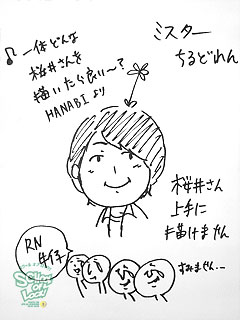 ミスター
ちるどれん
♪一体どんな
桜井さんを
描いたら良い〜?
HANABIより
桜井さん
上手に
描けません
すみません...
RN